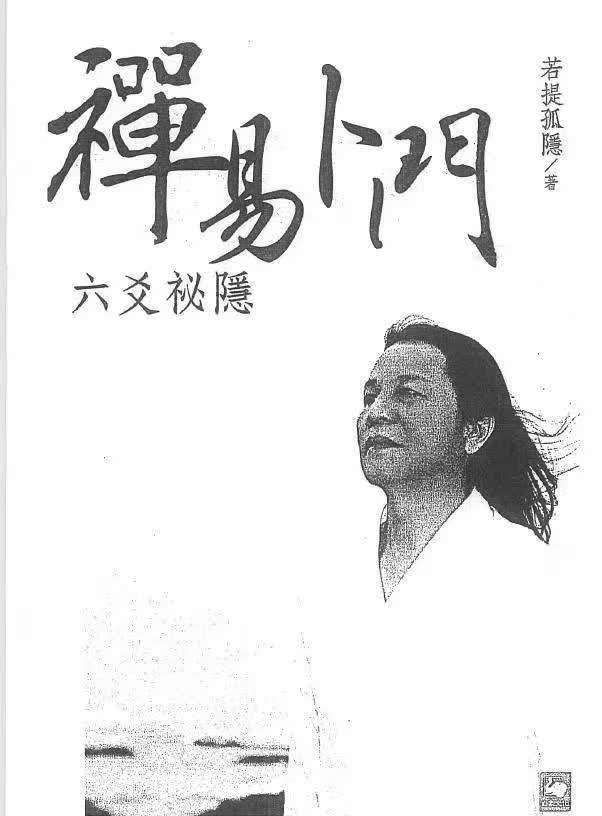 禪易卜門
六爻祕隱
若提孤隱/著